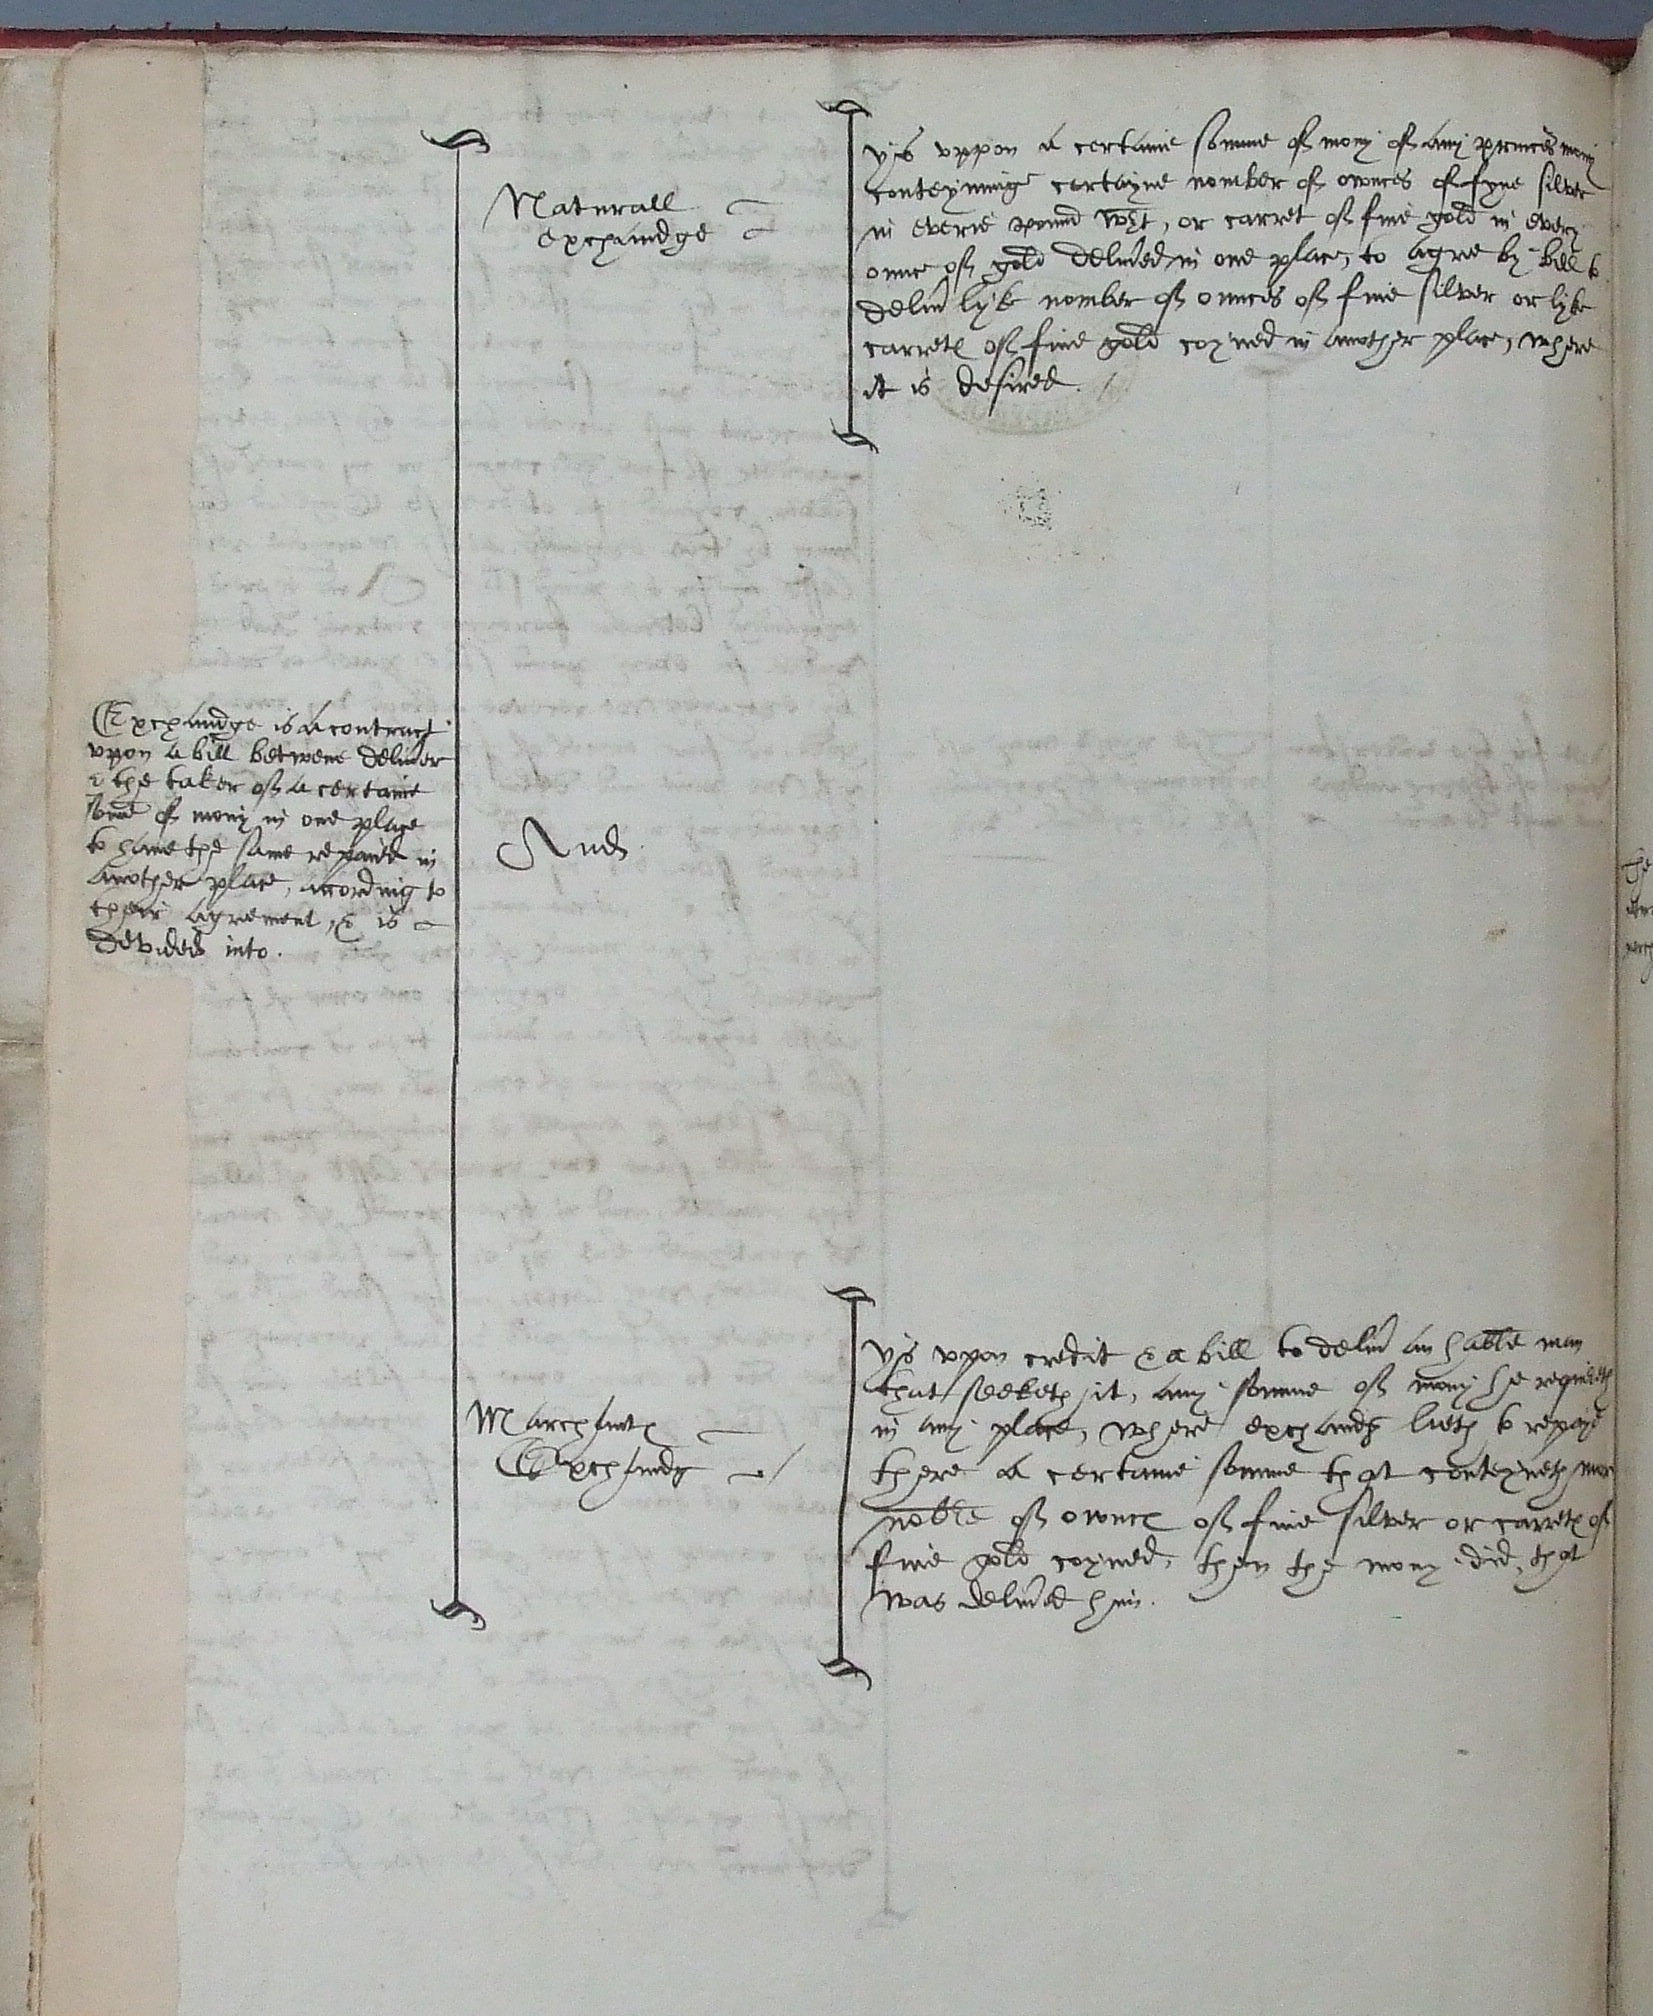 Exchaundge is a contract
vpon a bill betwene deliuer
& the taker of a certaine
some of mony in one place
to haue the same repaide in
another place, acording to
their agrement, & is
devided into.
Naturall
exchaundge
And
Marchants
Exchaundg
ys vppon a certaine somme of mony of any princes mony
conteyninge certayne nomber of ownces of fyne silver
in everie pound wgt, or carret of fine gold in every
ounce of gold delivred in one place, to agre by bill to
deliu lyke nomber of ounces of fine silver or lyke
carrets of fine gold coyned in another place, where
it is desired.
ys vpon credit & a bill to deliu an hable man
that seeketh it, any somme of mony he requireth
in any place, where exchandg lieth to repaye
there a certaine somme that conteyneth mor
nobre of ownces of fine silver or carrets of
fine gold coyned, then the mony did, that
was deliued him.